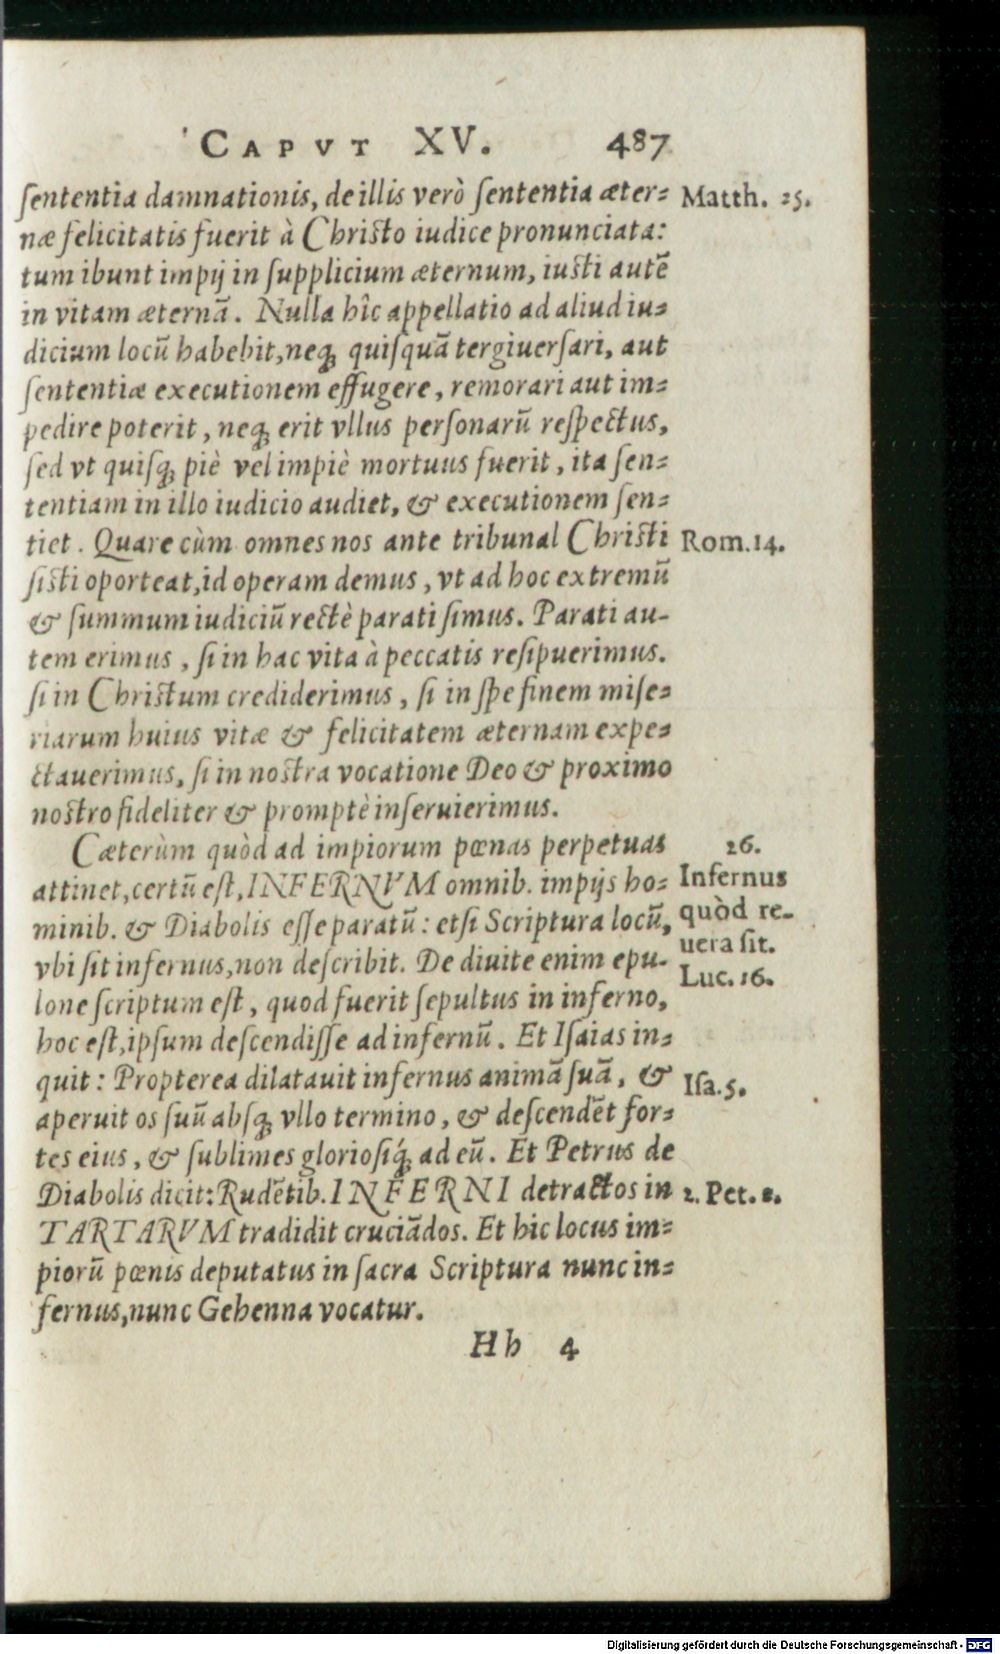 CAPVT XV. 487
ſententia damnationis, de illis verò ſententia æter- Matth. 25.
næ felicitatis fuerit à Chriſto iudice pronunciata:
tum ibunt impij in ſupplicium æternum, iuſti autē
in vitam æternā. Nulla hîc appellatio ad aliud iu-
dicium locū habebit, neq; quiſquā tergiuerſari, aut
ſententiæ executionem effugere, remorari aut im-
pedire poterit, neq; erit vllus perſonarū reſpectus,
ſed vt quiſq; piè vel impiè mortuus fuerit, ita ſen-
tentiam in illo iudicio audiet, & executionem ſen-
tiet. Quare cùm omnes nos ante tribunal Chriſti Rom. 14.
ſiſti oporteat, id operam demus, vt ad hoc extremū
& ſummum iudiciū rectè parati ſimus. Parati au-
tem erimus, ſi in hac vita à peccatis reſipuerimus.
ſi in Chriſtum crediderimus, ſi in ſpe finem miſe-
riarum huius vitæ & felicitatem æternam expe-
ctauerimus, ſi in noſtra vocatione Deo & proximo
noſtro fideliter & promptè inſeruierimus.
Cæterùm quòd ad impiorum pœnas perpetuas 26.
attinet, certū eſt, INFERNVM omnib. impijs ho- Infernus
minib. & Diabolis eſſe paratū: etſi Scriptura locū, quòd re-
vbi ſit infernus, non deſcribit. De diuite enim epu- uera ſit.
lone ſcriptum eſt, quod fuerit ſepultus in inferno, Luc. 16.
hoc eſt, ipſum deſcendiſſe ad infernū. Et Iſaias in-
quit: Propterea dilatauit infernus animā ſuā, & Iſa. 5.
aperuit os ſuū abſq; vllo termino, & deſcendēt for-
tes eius, & ſublimes glorioſiq́; ad eū. Et Petrus de
Diabolis dicit: Rudētib. INFERNI detractos in 2. Pet. 2.
TARTARVM tradidit cruciādos. Et hic locus im-
piorū pœnis deputatus in ſacra Scriptura nunc in-
fernus, nunc Gehenna vocatur.
Hh 4
Digitalisierung gefördert durch die Deutsche Forschungsgemeinschaft - DFG